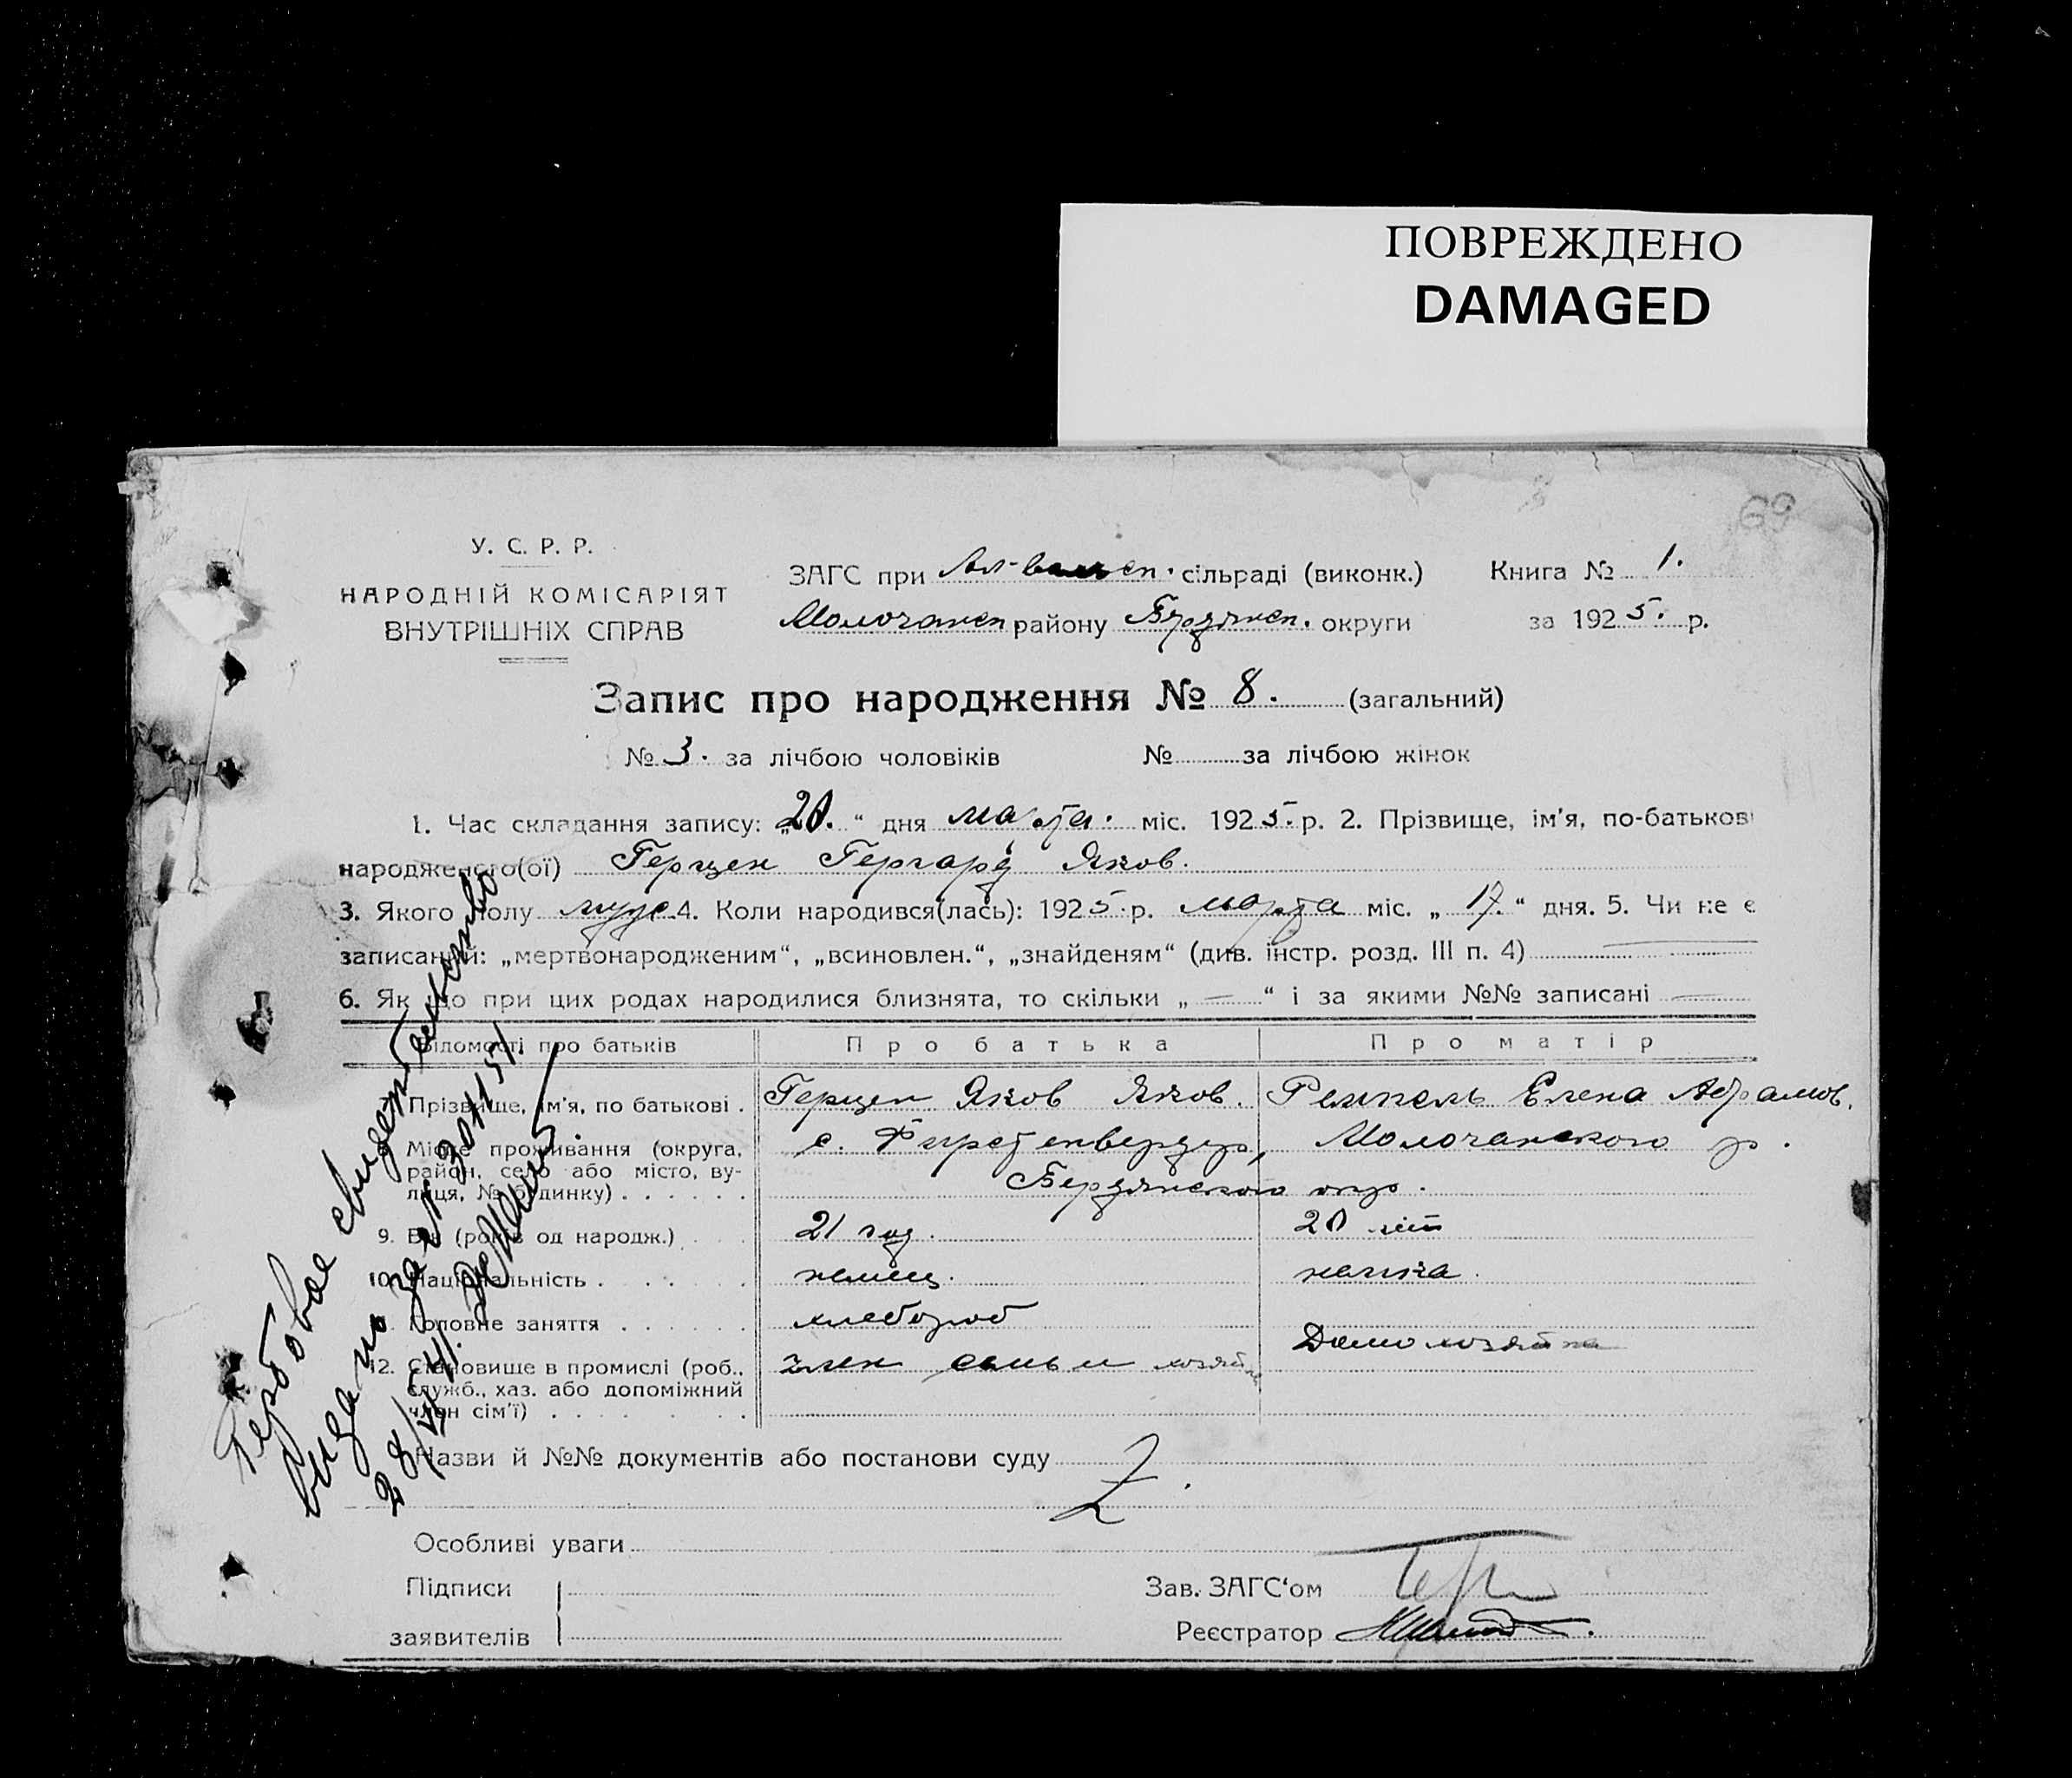 ПОВРЕЖДЕНО
DAMAGED
69
У. С. Р. Р.
НАРОДНІЙ КОМІСАРІЯТ
ВНУТРІШНІХ СПРАВ
ЗАГС при сільраді (виконк.) Книга № 1.
Молочанск району Бердянск. округи за 1925. р.
Запис про народження № 8. (загальний)
№ 3. за лічбою чоловіків № за лічбою жінок
1. Час складання запису: „20.“ дня марта. міс. 1925. р. 2. Прізвище, ім'я, по-батькові
народженого(ої) Герцен Гергард Яков.
3. Якого полу муж. 4. Коли народився(лась): 1925. р. марта міс. „17.“ дня. 5. Чи не є
записаний: „мертвонародженим“, „всиновлен.“, „знайденям“ (див. інстр. розд. III п. 4)
6. Як що при цих родах народилися близнята, то скільки „ — “ і за якими №№ записані —
Відомості про батьків Про батька Про матір
Прізвище, ім'я, по батькові . Герцен Яков Яков. Ремпель Елена Абрамов.
Місце проживання (округа, с. Фирстенвердер, Молочанского р.
район, село або місто, ву-
лиця, № будинку) . . . . . . Бердянского окр.
9. Вік (років од народж.) . . . 21 год. 20 лет
10. Національність . . . . . немец. немка.
Головне заняття . . . . . . хлебороб Домохозяйка
12. Становище в промислі (роб., член семьи хозяй
служб., хаз. або допоміжний
член сім'ї) . . . . . . .
Назви й №№ документів або постанови суду
Особливі уваги
Підписи Зав. ЗАГС'ом
заявителів Реєстратор
Гербовое свидетельство
видано за №
28/VI 41.